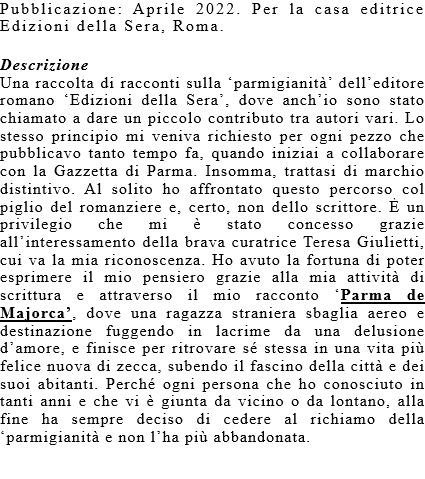 Pubblicazione: Aprile 2022. Per la casa editrice
Edizioni della Sera, Roma.
Descrizione
Una raccolta di racconti sulla ‘parmigianità’ dell’editore
romano ‘Edizioni della Sera’, dove anch’io sono stato
chiamato a dare un piccolo contributo tra autori vari. Lo
stesso principio mi veniva richiesto per ogni pezzo che
pubblicavo tanto tempo fa, quando iniziai a collaborare
con la Gazzetta di Parma. Insomma, trattasi di marchio
distintivo. Al solito ho affrontato questo percorso col
piglio del romanziere e, certo, non dello scrittore. È un
privilegio che mi è stato concesso grazie
all’interessamento della brava curatrice Teresa Giulietti,
cui va la mia riconoscenza. Ho avuto la fortuna di poter
esprimere il mio pensiero grazie alla mia attività di
scrittura e attraverso il mio racconto ‘Parma de
Majorca’, dove una ragazza straniera sbaglia aereo e
destinazione fuggendo in lacrime da una delusione
d’amore, e finisce per ritrovare sé stessa in una vita più
felice nuova di zecca, subendo il fascino della città e dei
suoi abitanti. Perché ogni persona che ho conosciuto in
tanti anni e che vi è giunta da vicino o da lontano, alla
fine ha sempre deciso di cedere al richiamo della
‘parmigianità e non l’ha più abbandonata.